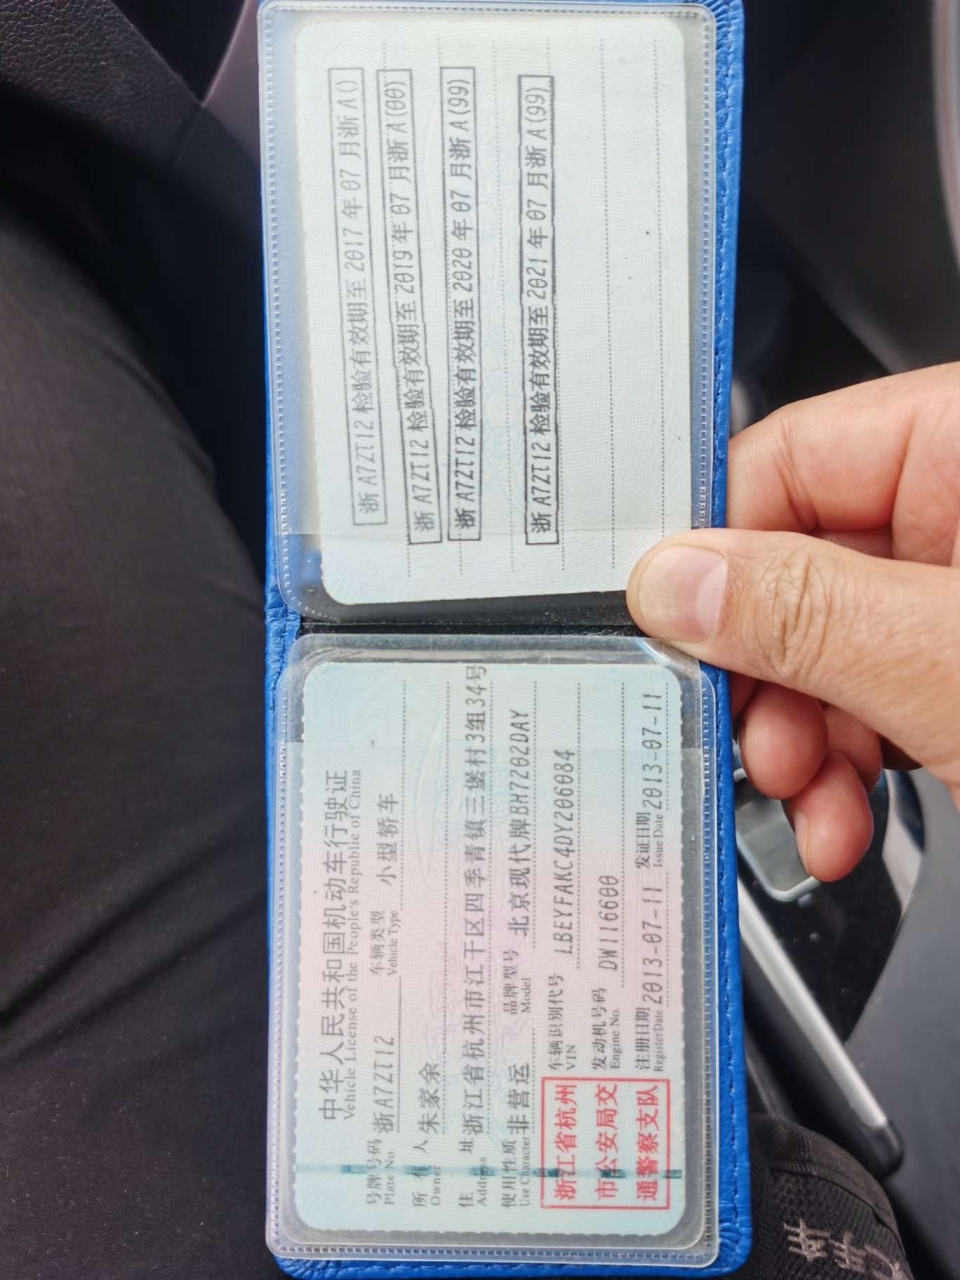 中华人民共和国机动车行驶证
Vehicle License of the People's Republic of China
号牌号码 浙A7ZT12 车辆类型 小型轿车
Plate No. Vehicle Type
所有人 朱家余
Owner
住址 浙江省杭州市江干区四季青镇三堡村3组34号
Address
使用性质 非营运 品牌型号 北京现代牌BH7202DAY
Use Character Model
浙江省杭州
市公安局交
通警察支队
车辆识别代号 LBEYFAKC4DY206084
VIN
发动机号码 DW116600
Engine No.
注册日期 2013-07-11 发证日期 2013-07-11
Register Date Issue Date
浙A7ZT12 检验有效期至 2017年07月浙A()
浙A7ZT12 检验有效期至 2019年07月浙A(00)
浙A7ZT12 检验有效期至 2020年07月浙A(99)
浙A7ZT12 检验有效期至 2021年07月浙A(99)